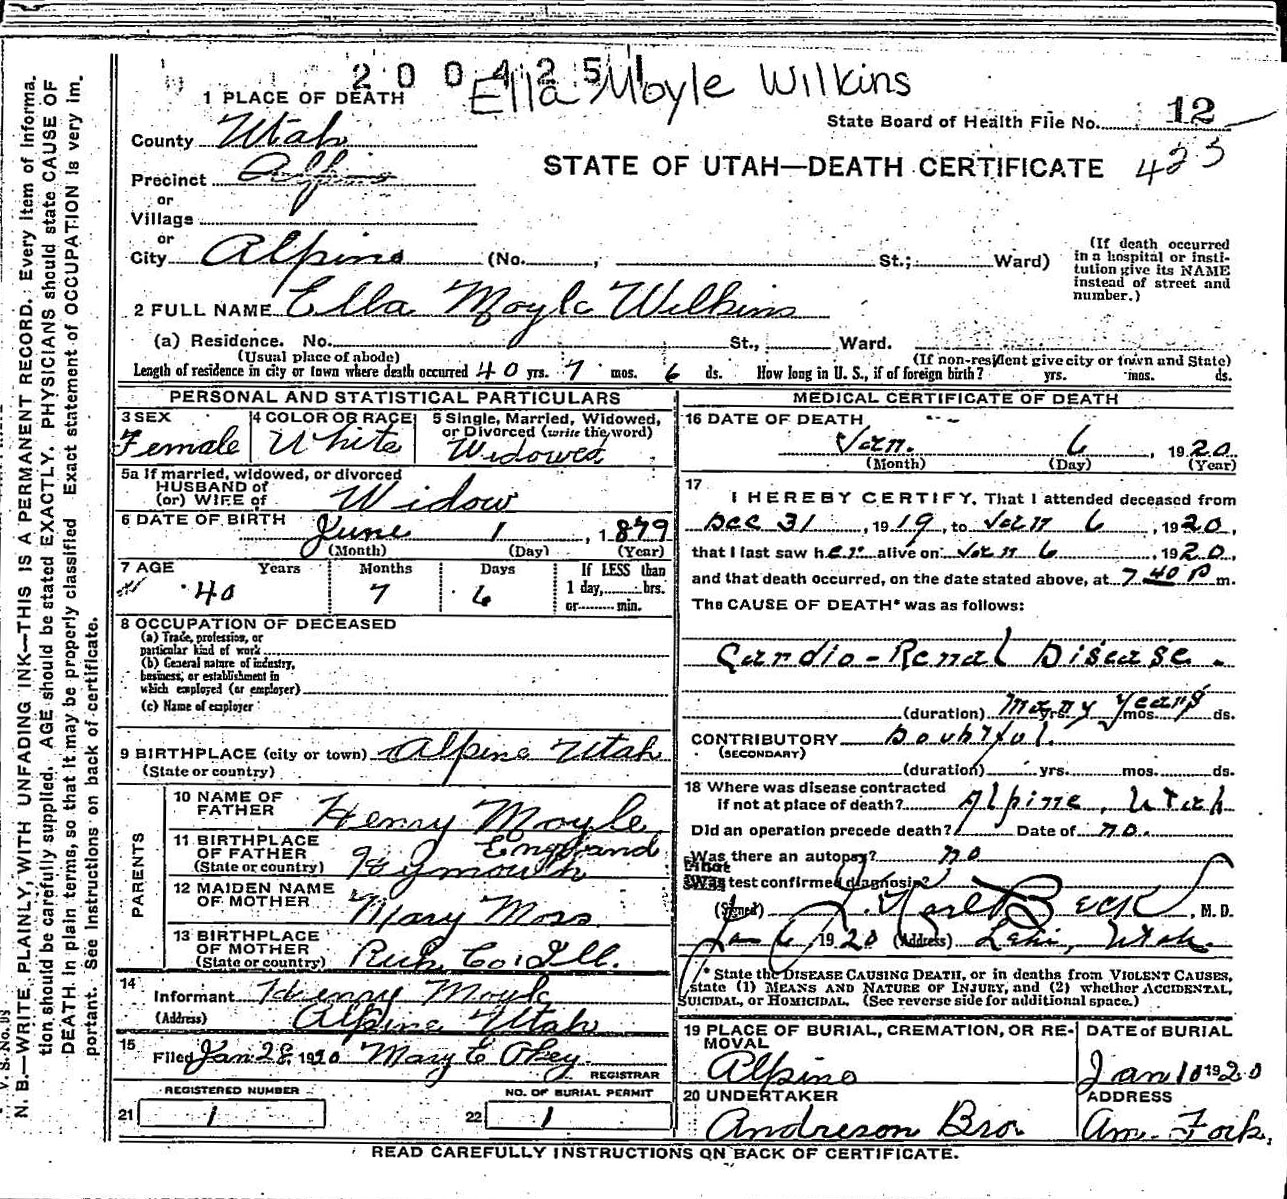 2 0 0 4 2 5 1
Ella Moyle Wilkins
1 PLACE OF DEATH
State Board of Health File No. 12
County Utah
STATE OF UTAH—DEATH CERTIFICATE 423
Precinct Alpine
or
Village
or
City Alpine (No. , St.; Ward)
(If death occurred
in a hospital or insti-
tution give its NAME
instead of street and
number.)
2 FULL NAME Ella Moyle Wilkins
(a) Residence. No. St., Ward.
(Usual place of abode) (If non-resident give city or town and State)
Length of residence in city or town where death occurred 40 yrs. 7 mos. 6 ds. How long in U. S., if of foreign birth? yrs. mos. ds.
PERSONAL AND STATISTICAL PARTICULARS
3 SEX 4 COLOR OR RACE 5 Single, Married, Widowed,
or Divorced (write the word)
Female White Widowed
5a If married, widowed, or divorced
HUSBAND of
(or) WIFE of Widow
6 DATE OF BIRTH June 1, 1879
(Month) (Day) (Year)
7 AGE Years Months Days If LESS than
1 day, hrs.
or min.
40 7 6
8 OCCUPATION OF DECEASED
(a) Trade, profession, or
particular kind of work
(b) General nature of industry,
business, or establishment in
which employed (or employer)
(c) Name of employer
9 BIRTHPLACE (city or town) Alpine Utah
(State or country)
PARENTS
10 NAME OF
FATHER Henry Moyle
11 BIRTHPLACE
OF FATHER England
(State or country)
12 MAIDEN NAME
OF MOTHER Mary Moss
13 BIRTHPLACE
OF MOTHER
(State or country) Co. Ill.
14
Informant Henry Moyle
(Address) Alpine Utah
15
Filed Jan 28 1920 Mary E Okey
REGISTRAR
REGISTERED NUMBER NO. OF BURIAL PERMIT
21 1 22 1
MEDICAL CERTIFICATE OF DEATH
16 DATE OF DEATH
Jan. 6, 1920
(Month) (Day) (Year)
17
I HEREBY CERTIFY, That I attended deceased from
Dec 31, 1919, to Jan 6, 1920,
that I last saw her alive on Jan 6, 1920,
and that death occurred, on the date stated above, at 7 40 P m.
The CAUSE OF DEATH* was as follows:
Cardio-Renal Disease.
(duration) Many years yrs. mos. ds.
CONTRIBUTORY Doubtful.
(SECONDARY)
(duration) yrs. mos. ds.
18 Where was disease contracted
if not at place of death? Alpine, Utah
Did an operation precede death? Date of no.
Was there an autopsy? no
What test confirmed diagnosis?
(Signed) J. Karl Beck, M. D.
Jan 6, 1920 (Address) Lehi, Utah.
* State the DISEASE CAUSING DEATH, or in deaths from VIOLENT CAUSES,
state (1) MEANS AND NATURE OF INJURY, and (2) whether ACCIDENTAL,
SUICIDAL, or HOMICIDAL. (See reverse side for additional space.)
19 PLACE OF BURIAL, CREMATION, OR RE-
MOVAL
Alpine
DATE of BURIAL
Jan 10 1920
20 UNDERTAKER
Andreson Bro
ADDRESS
Am. Fork,
READ CAREFULLY INSTRUCTIONS ON BACK OF CERTIFICATE.
N. B.—WRITE PLAINLY, WITH UNFADING INK—THIS IS A PERMANENT RECORD. Every item of informa-
tion should be carefully supplied. AGE should be stated EXACTLY. PHYSICIANS should state CAUSE OF
DEATH in plain terms, so that it may be properly classified. Exact statement of OCCUPATION is very im-
portant. See instructions on back of certificate.